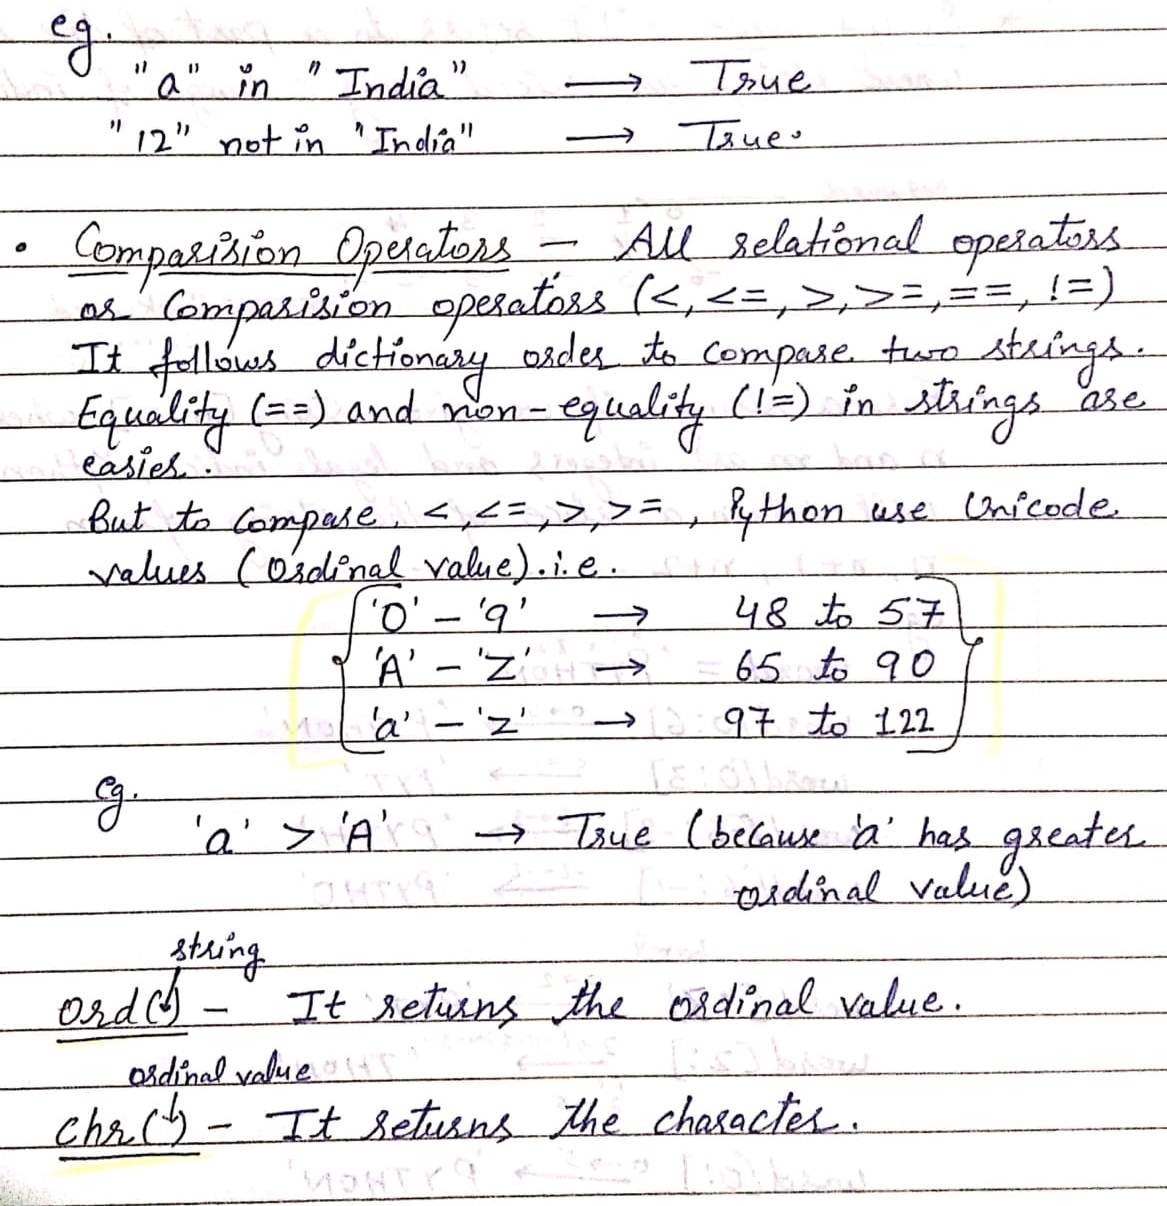 eg.
"a" in "India" → True
"12" not in "India" → True.
• Comparision Operators – All relational operators
or Comparision operators (<, <=, >, >=, ==, !=)
It follows dictionary order to compare two strings.
Equality (==) and non-equality (!=) in strings are
easier.
But to compare, <, <=, >, >=, Python use Unicode
values (Ordinal value). i.e.
'0' – '9' → 48 to 57
'A' – 'Z' → 65 to 90
'a' – 'z' → 97 to 122
eg.
'a' > 'A' → True (because 'a' has greater
ordinal value)
string
ord(↓) – It returns the ordinal value.
ordinal value
chr(↓) – It returns the character.